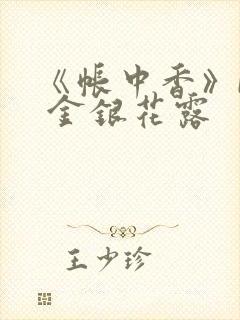 《帐中香》
金银花露
王少珍